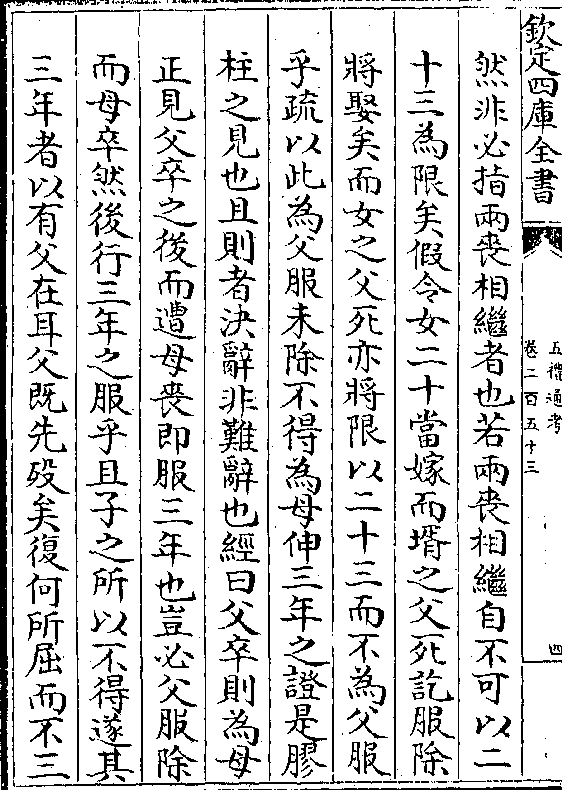 欽定四庫全書
五禮通考
卷二百五十三
四
然非必指兩喪相繼者也若兩喪相繼自不可以二
十三為限矣假令女二十當嫁而壻之父死訖服除
將娶矣而女之父死亦將限以二十三而不為父服
乎疏以此為父服未除不得為母伸三年之證是膠
柱之見也且則者決辭非難辭也經曰父卒則為母
正見父卒之後而遭母喪即服三年也豈必父服除
而母卒然後行三年之服乎且子之所以不得遂其
三年者以有父在耳父既先歿矣復何所屈而不三